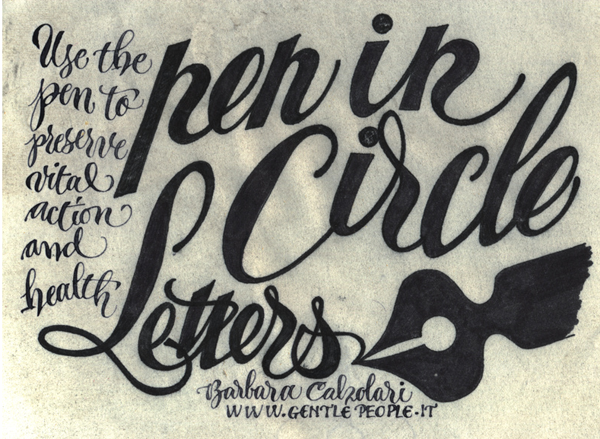 Use the
pen to
preserve
vital
action
and
health
pen in
Circle
Letters
Barbara Calzolari
WWW.GENTLEPEOPLE.IT